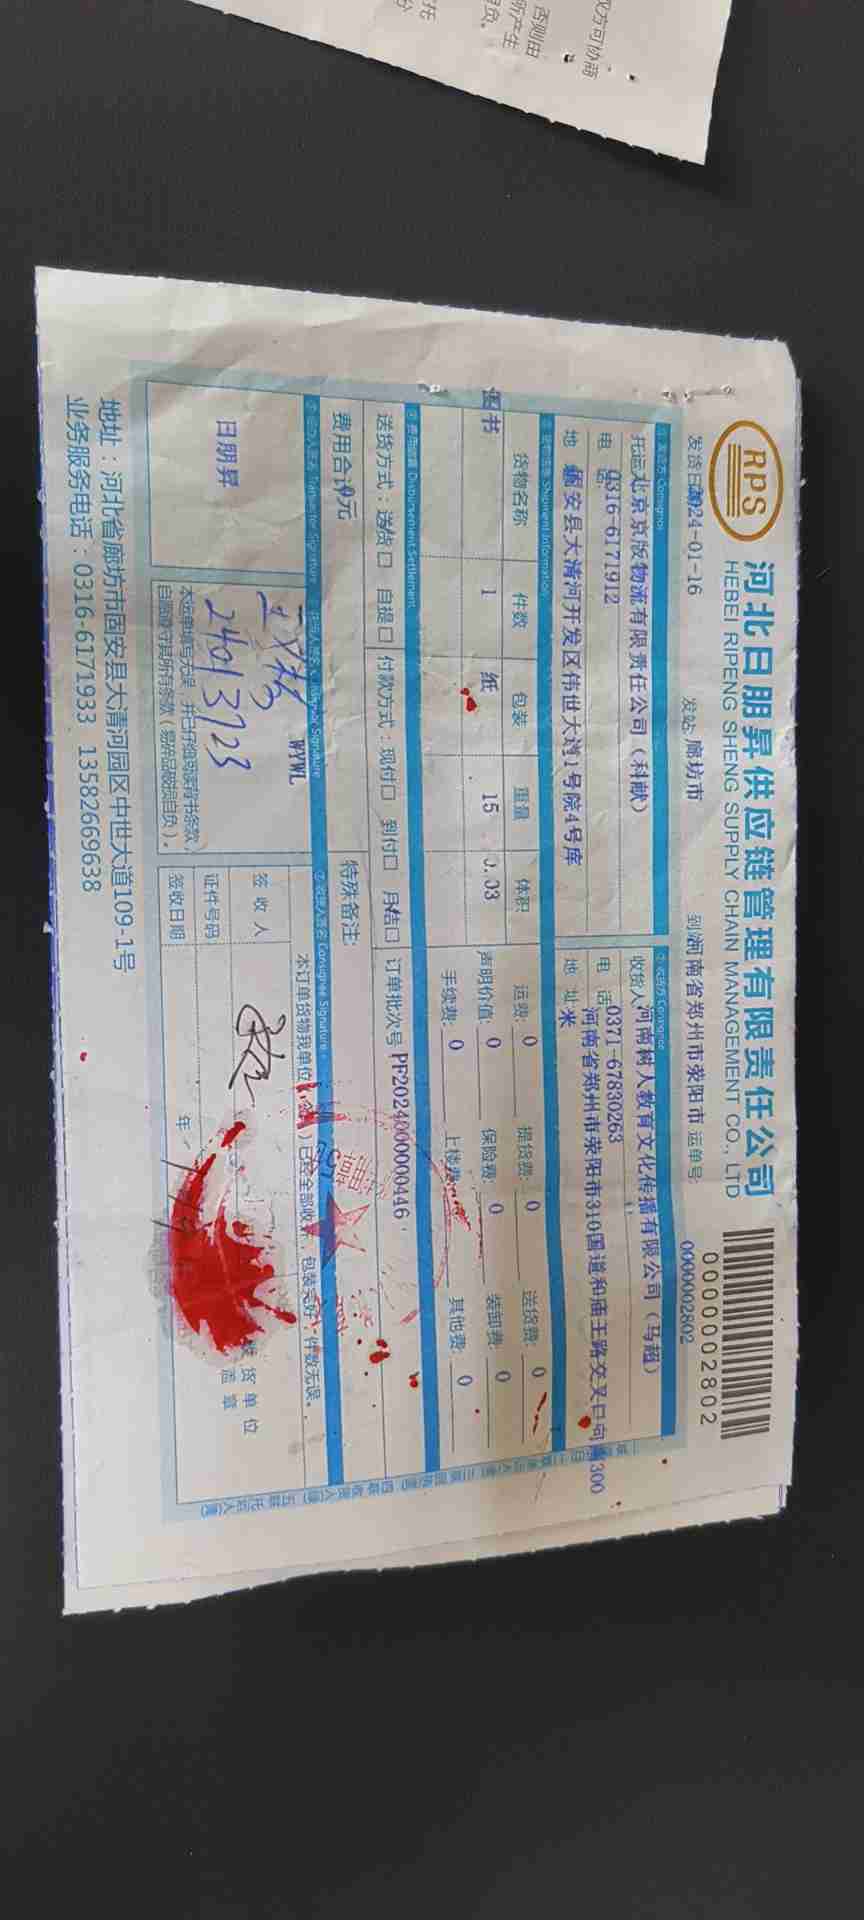 RPS
河北日朋昇供应链管理有限责任公司
HEBEI RIPENG SHENG SUPPLY CHAIN MANAGEMENT CO., LTD
0000002802
发货日期2024-01-16 发站 廊坊市 到站河南省郑州市荥阳市 运单号 0000002802
托运人北京京版物流有限责任公司（科献）
电 话0316-6171912
地 址固安县大清河开发区伟世大道1号院4号库
收货人河南树人教育文化传播有限公司（马超）
电 话0371-67830263
地 址河南省郑州市荥阳市310国道和庙王路交叉口向南300
米
货物名称 件数 包装 重量 体积
图书 1 纸 15 0.03
运费: 0 提货费: 0 送货费: 0
声明价值: 0 保险费: 0 装卸费: 0
手续费: 0 上楼费: 其他费: 0
送货方式：送货☐ 自提☐ 付款方式：现付☐ 到付☐ 月结☐ 订单批次号 PF2024000000446
费用合计:0元 特殊备注:
日朋昇
WYWL
本订单货物我单位（签章）已经全部收齐，包装完好，件数无误。
签 收 人
证件号码
签收日期 年
收货单位
盖 章
本运单填写无误，并已仔细阅读背书条款，
自愿遵守其所有条款（易碎品破损自负）。
地址：河北省廊坊市固安县大清河园区中世大道109-1号
业务服务电话：0316-6171933 13582669638